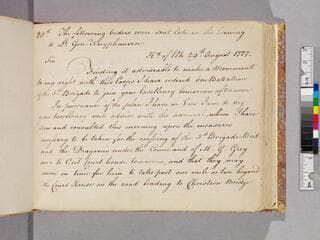 28th The following orders were sent late in the Evening
to Lt. Genl. Knyphausen.
Sir Hd. Qrs. of Elk 28th August 1777.
Finding it adviseable to make a Movement
to my right with this Corps I have ordered one Battalion
of the 3d Brigade to join your Excellency tomorrow afternoon.
In pursuance of the plan I have in View I am to beg
your Excellency will advise with the
and consulted this morning upon the measures
necessary to be taken for the crossing of the 3d Brigade
and the Dragoons under the Command of M. G. Grey
over to Cecil Court house tomorrow, and that they may
move in time for him to take post one mile or two beyond
the Court House on the road leading to Christeen Bridge